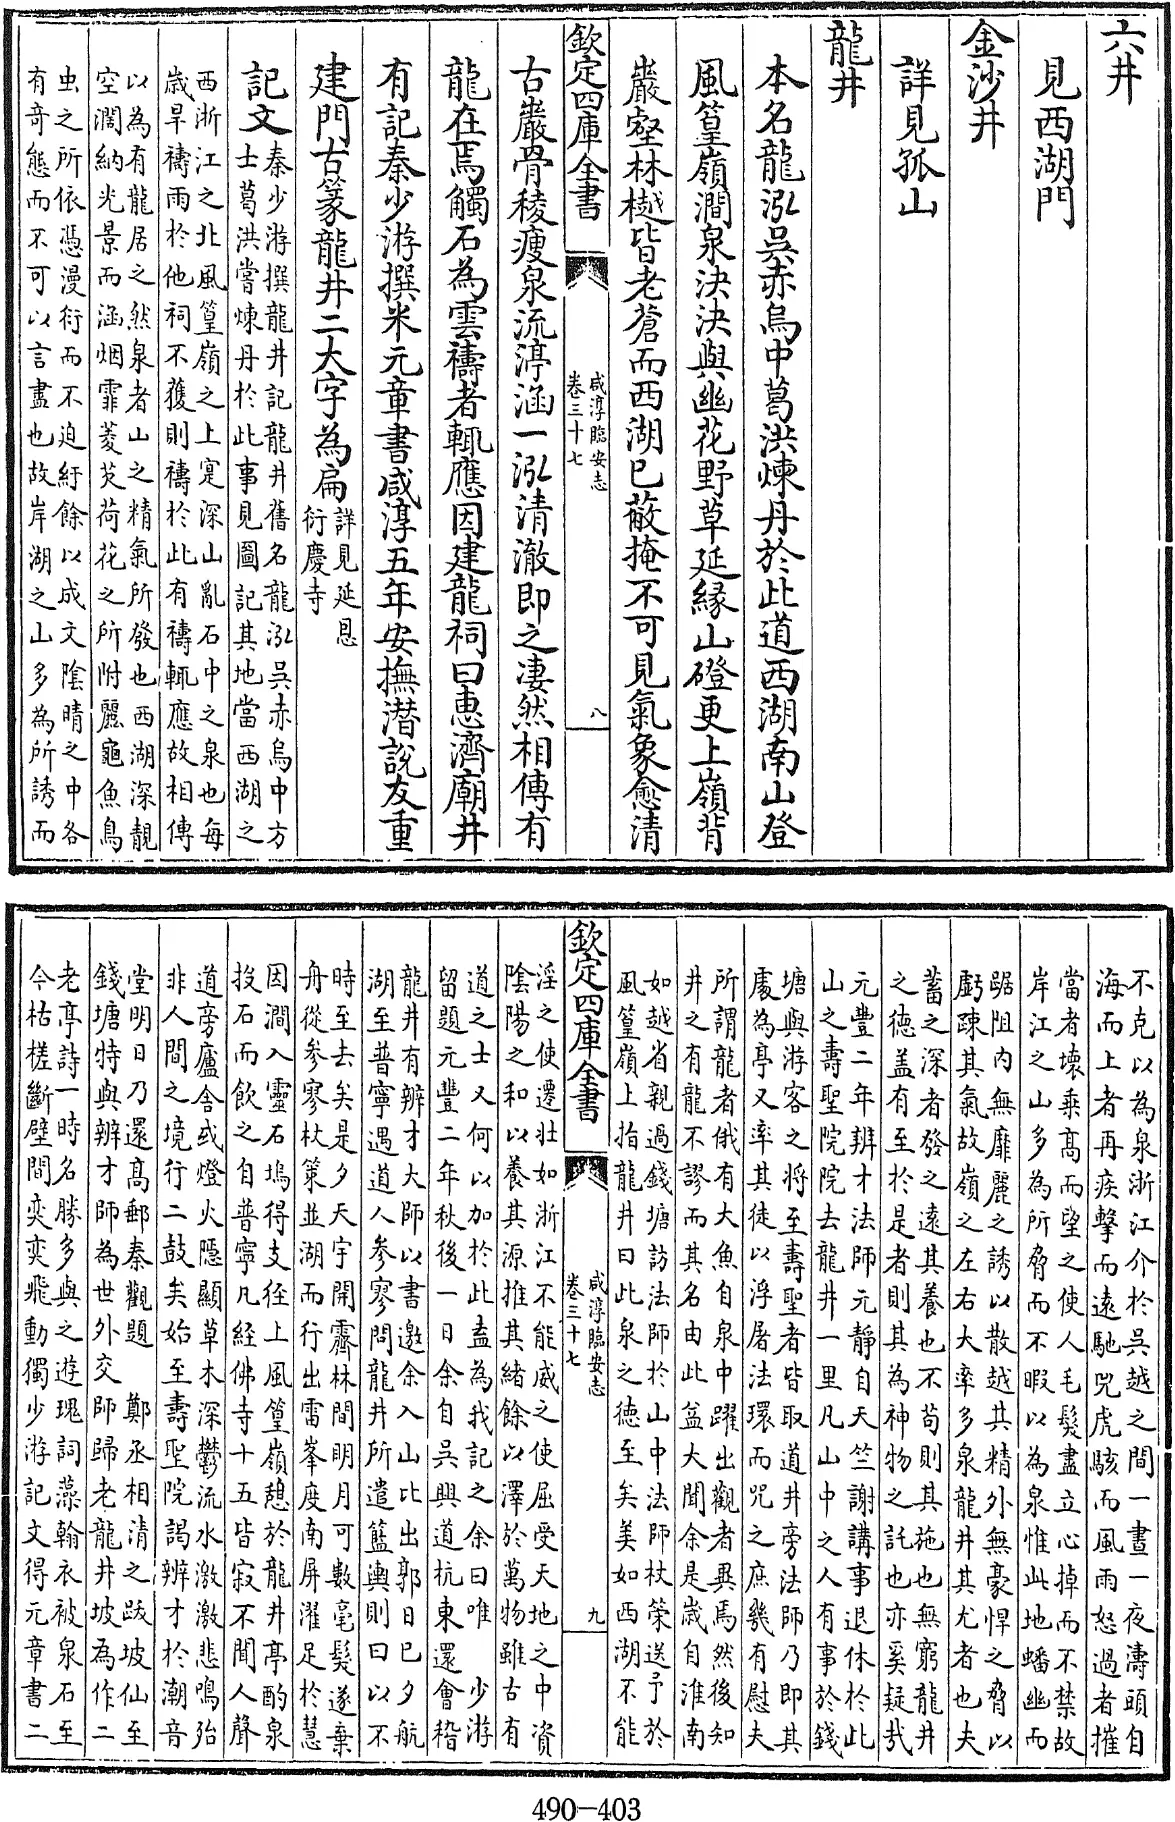 六井
見西湖門
金沙井
詳見孤山
龍井
本名龍泓吳赤烏中葛洪煉丹於此道西湖南山登
風篁嶺澗泉決決與幽花野草延緣山磴更上嶺背
巖壑林樾皆老蒼而西湖已蔽掩不可見氣象愈清
欽定四庫全書
咸淳臨安志
卷三十七
八
古巖骨稜瘦泉流渟涵一泓清澈即之凄然相傳有
龍在焉觸石為雲禱者輒應因建龍祠曰惠濟廟井
有記秦少游撰米元章書咸淳五年安撫潛說友重
建門古篆龍井二大字為扁
詳見延恩
衍慶寺
記文
秦少游撰龍井記龍井舊名龍泓吳赤烏中方
士葛洪嘗煉丹於此事見圖記其地當西湖之
西浙江之北風篁嶺之上寔深山亂石中之泉也每
歲旱禱雨於他祠不獲則禱於此有禱輒應故相傳
以為有龍居之然泉者山之精氣所發也西湖深靚
空濶納光景而涵烟霏菱芡荷花之所附麗龜魚鳥
虫之所依憑漫衍而不迫紆餘以成文陰晴之中各
有奇態而不可以言盡也故岸湖之山多為所誘而
不克以為泉浙江介於吳越之間一晝一夜濤頭自
海而上者再疾擊而遠馳兕虎駭而風雨怒過者摧
當者壞乘高而望之使人毛髮盡立心掉而不禁故
岸江之山多為所脅而不暇以為泉惟此地蟠幽而
踞阻内無靡麗之誘以散越其精外無豪悍之脅以
虧踈其氣故嶺之左右大率多泉龍井其尤者也夫
蓄之深者發之遠其養也不苟則其施也無窮龍井
之德盖有至於是者則其為神物之託也亦奚疑哉
元豐二年辨才法師元靜自天竺謝講事退休於此
山之壽聖院院去龍井一里凡山中之人有事於錢
塘與游客之將至壽聖者皆取道井旁法師乃即其
處為亭又率其徒以浮屠法環而咒之庶幾有慰夫
所謂龍者俄有大魚自泉中躍出觀者異焉然後知
井之有龍不謬而其名由此益大聞余是歲自淮南
如越省親過錢塘訪法師於山中法師杖策送予於
風篁嶺上指龍井曰此泉之德至矣美如西湖不能
欽定四庫全書
咸淳臨安志
卷三十七
九
淫之使遷壯如浙江不能威之使屈受天地之中資
陰陽之和以養其源推其緒餘以澤於萬物雖古有
道之士又何以加於此盍為我記之余曰唯 少游
留題元豐二年秋後一日余自吳興道杭東還會稽
龍井有辨才大師以書邀余入山比出郭日已夕航
湖至普寧遇道人參寥問龍井所遣籃輿則曰以不
時至去矣是夕天宇開霽林間明月可數毫髮遂棄
舟從參寥杖策並湖而行出雷峯度南屏濯足於慧
因澗入靈石塢得支徑上風篁嶺憩於龍井亭酌泉
投石而飲之自普寧凡經佛寺十五皆寂不聞人聲
道旁廬舍或燈火隱顯草木深鬱流水激激悲鳴殆
非人間之境行二鼓矣始至壽聖院謁辨才於潮音
堂明日乃還高郵秦觀題 鄭丞相清之跋坡仙至
錢塘特與辨才師為世外交師歸老龍井坡為作二
老亭詩一時名勝多與之遊瑰詞藻翰衣被泉石至
今枯槎斷壁間奕奕飛動獨少游記文得元章書二
490-403